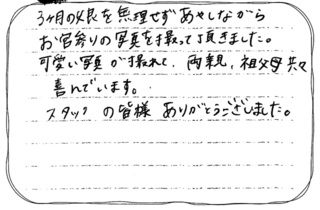 3ヶ月の娘を無理せずあやしながら
お宮参りの写真を撮って頂きました。
可愛い写真が撮れて、両親、祖父母共々
喜んでいます。
スタッフの皆様 ありがとうございました。